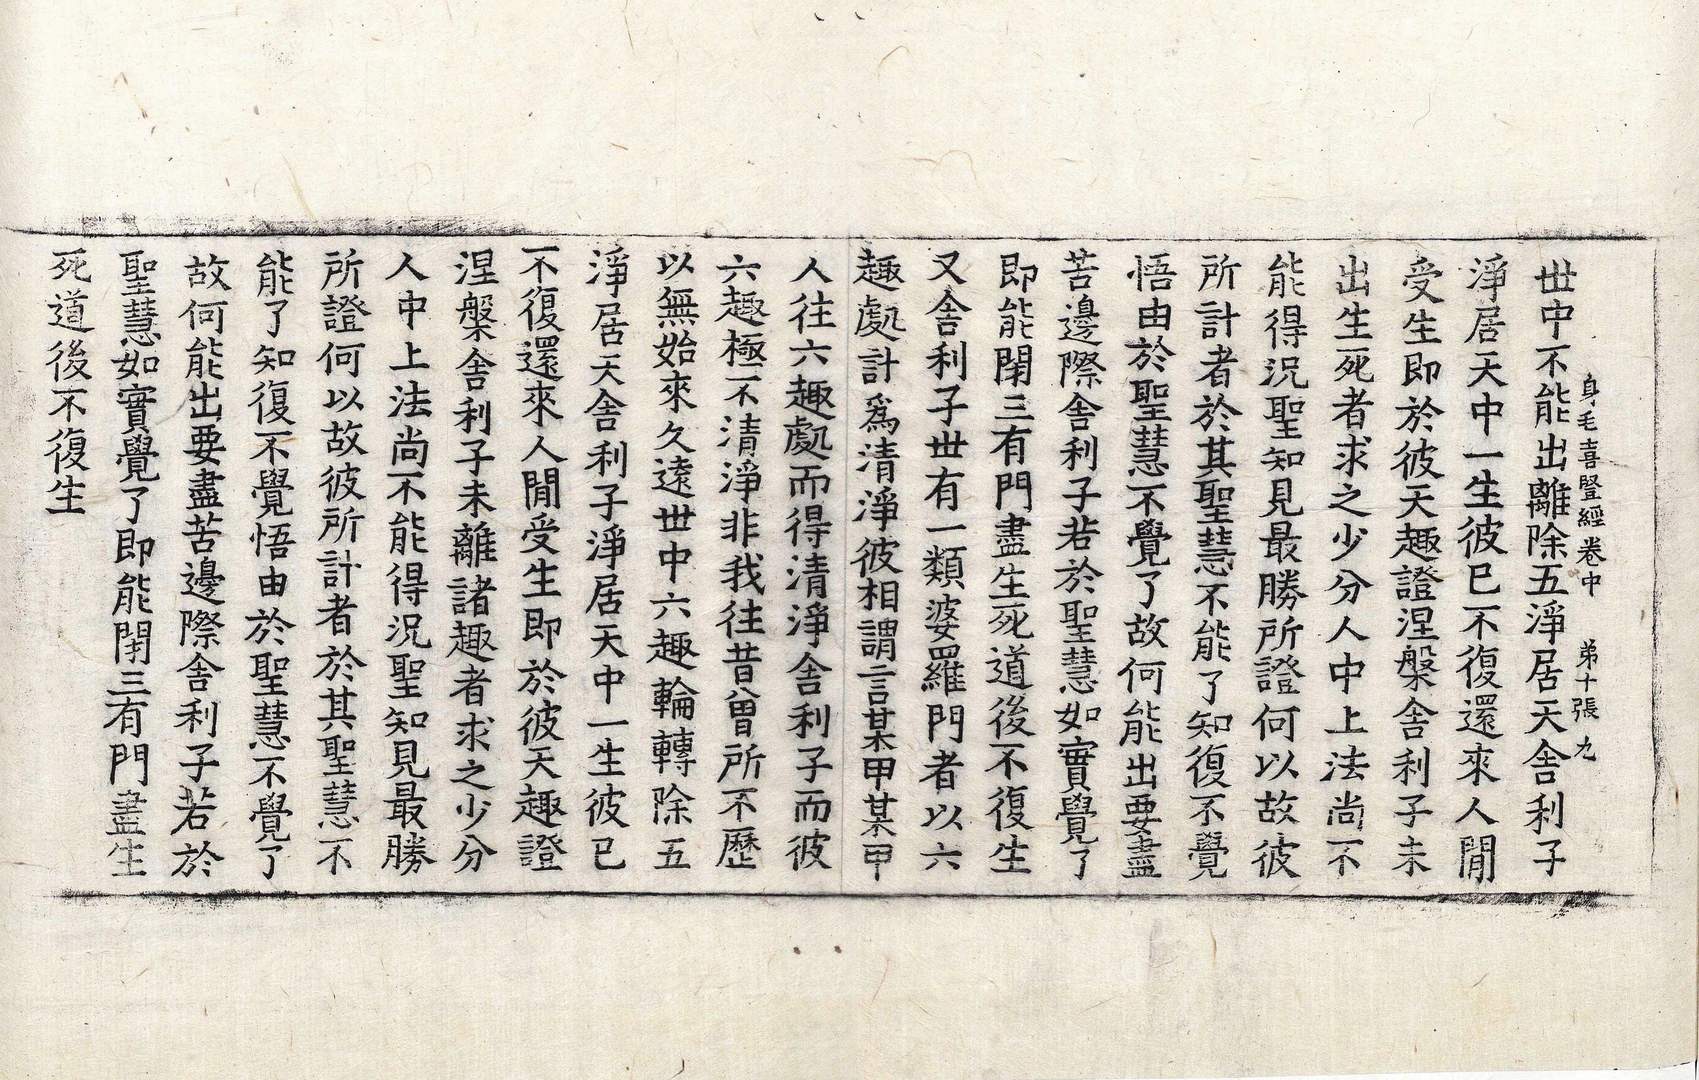 身毛喜豎經卷中 第十張 九
世中不能出離除五淨居天舍利子
淨居天中一生彼已不復還來人間
受生即於彼天趣證涅槃舍利子未
出生死者求之少分人中上法尚不
能得況聖知見最勝所證何以故彼
所計者於其聖慧不能了知復不覺
悟由於聖慧不覺了故何能出要盡
苦邊際舍利子若於聖慧如實覺了
即能閉三有門盡生死道後不復生
又舍利子世有一類婆羅門者以六
趣處計為清淨彼相謂言某甲某甲
人往六趣處而得清淨舍利子而彼
六趣極不清淨非我往昔曾所不歷
以無始來久遠世中六趣輪轉除五
淨居天舍利子淨居天中一生彼已
不復還來人間受生即於彼天趣證
涅槃舍利子未離諸趣者求之少分
人中上法尚不能得況聖知見最勝
所證何以故彼所計者於其聖慧不
能了知復不覺悟由於聖慧不覺了
故何能出要盡苦邊際舍利子若於
聖慧如實覺了即能閉三有門盡生
死道後不復生